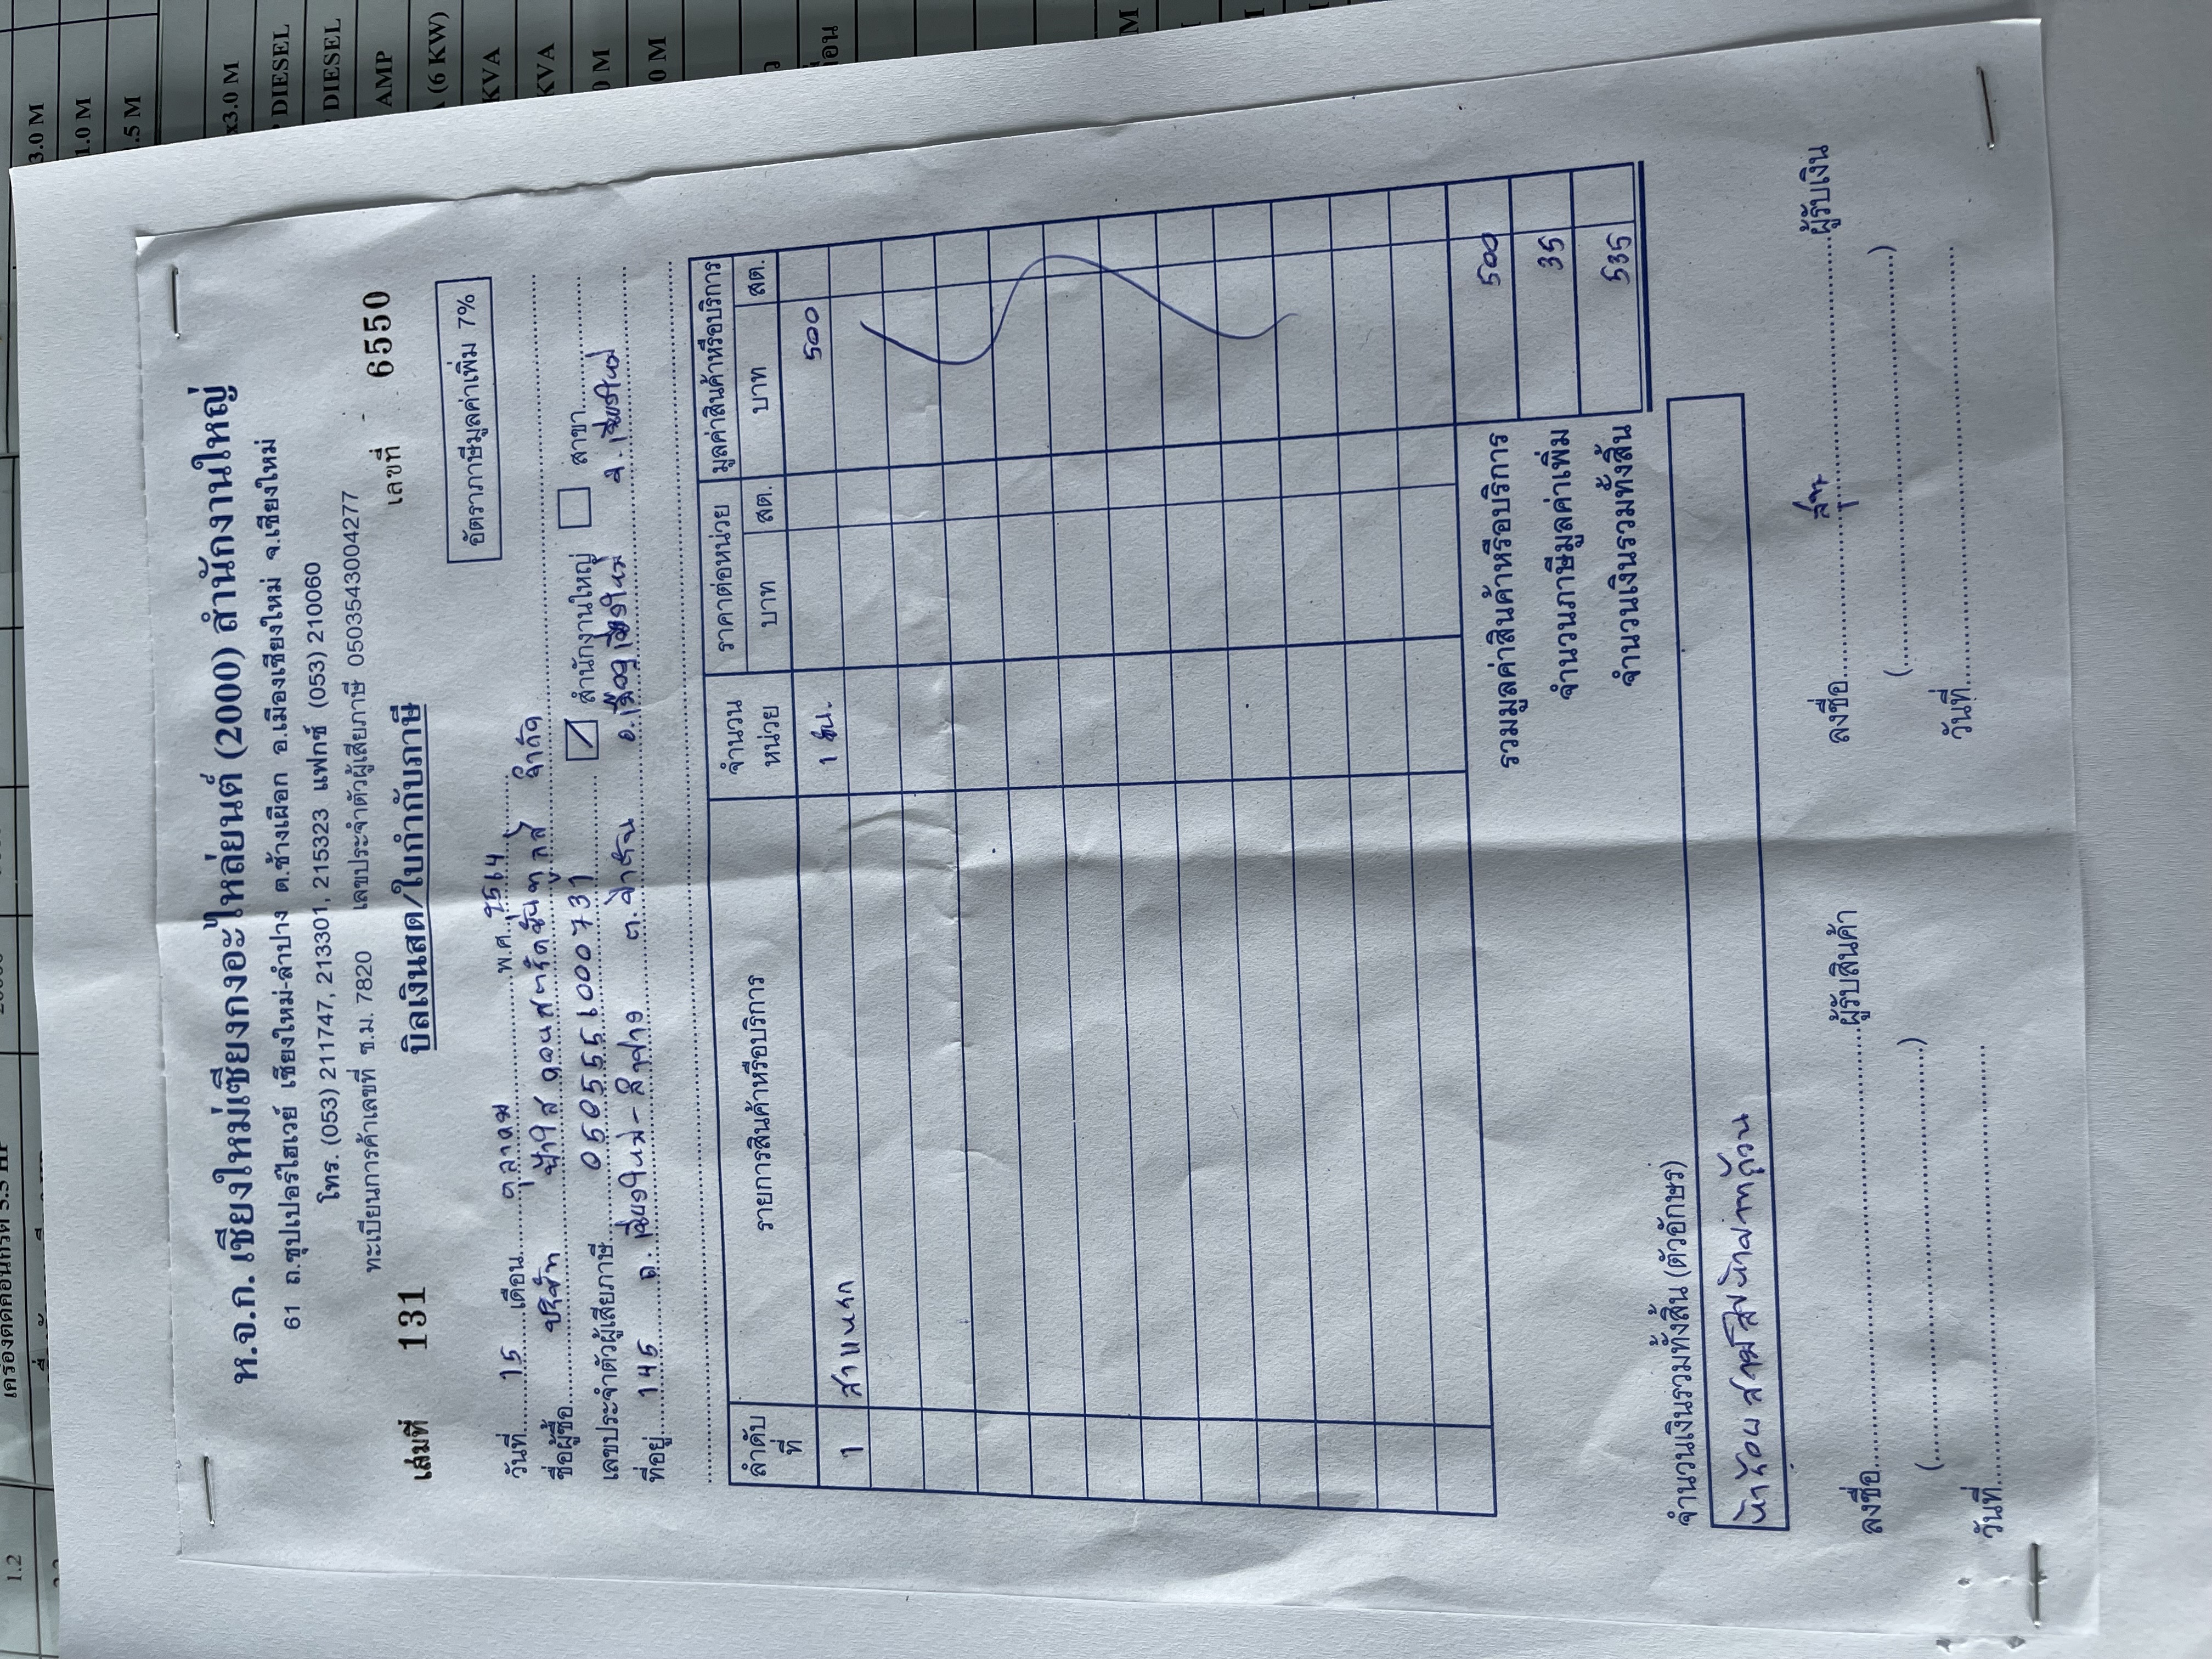 1.2 เครื่องตัดคอนกรีต 5.5 HP
3.0 M
1.0 M
.5 M
x3.0 M
DIESEL
DIESEL
AMP
(6 KW)
KVA
KVA
0 M
0 M
ห.จ.ก. เชียงใหม่เซียงกงอะไหล่ยนต์ (2000) สำนักงานใหญ่
61 ถ.ซุปเปอร์ไฮเวย์ เชียงใหม่-ลำปาง ต.ช้างเผือก อ.เมืองเชียงใหม่ จ.เชียงใหม่
โทร. (053) 211747, 213301, 215323 แฟกซ์ (053) 210060
ทะเบียนการค้าเลขที่ ช.ม. 7820 เลขประจำตัวผู้เสียภาษี 0503543004277
เล่มที่ 131 บิลเงินสด/ใบกำกับภาษี เลขที่ 6550
อัตราภาษีมูลค่าเพิ่ม 7%
วันที่ 15 เดือน ตุลาคม พ.ศ. 2564
ชื่อผู้ซื้อ บริษัท ฟ้าใส คอนสตรัคชั่นทูลส์ จำกัด
เลขประจำตัวผู้เสียภาษี 0505551000731 สำนักงานใหญ่ สาขา
ที่อยู่ 145 ถ. เชียงใหม่-ลำปาง ต. ป่าตัน อ.เมืองเชียงใหม่ จ. เชียงใหม่
ลำดับที่ รายการสินค้าหรือบริการ จำนวนหน่วย ราคาต่อหน่วย มูลค่าสินค้าหรือบริการ
บาท สต. บาท สต.
1 สาแหรก 1 500
รวมมูลค่าสินค้าหรือบริการ 500
จำนวนภาษีมูลค่าเพิ่ม 35
จำนวนเงินรวมทั้งสิ้น 535
จำนวนเงินรวมทั้งสิ้น (ตัวอักษร)
ห้าร้อยสามสิบห้าบาทถ้วน
ลงชื่อ ผู้รับสินค้า ลงชื่อ ผู้รับเงิน
(....................) (....................)
วันที่ วันที่